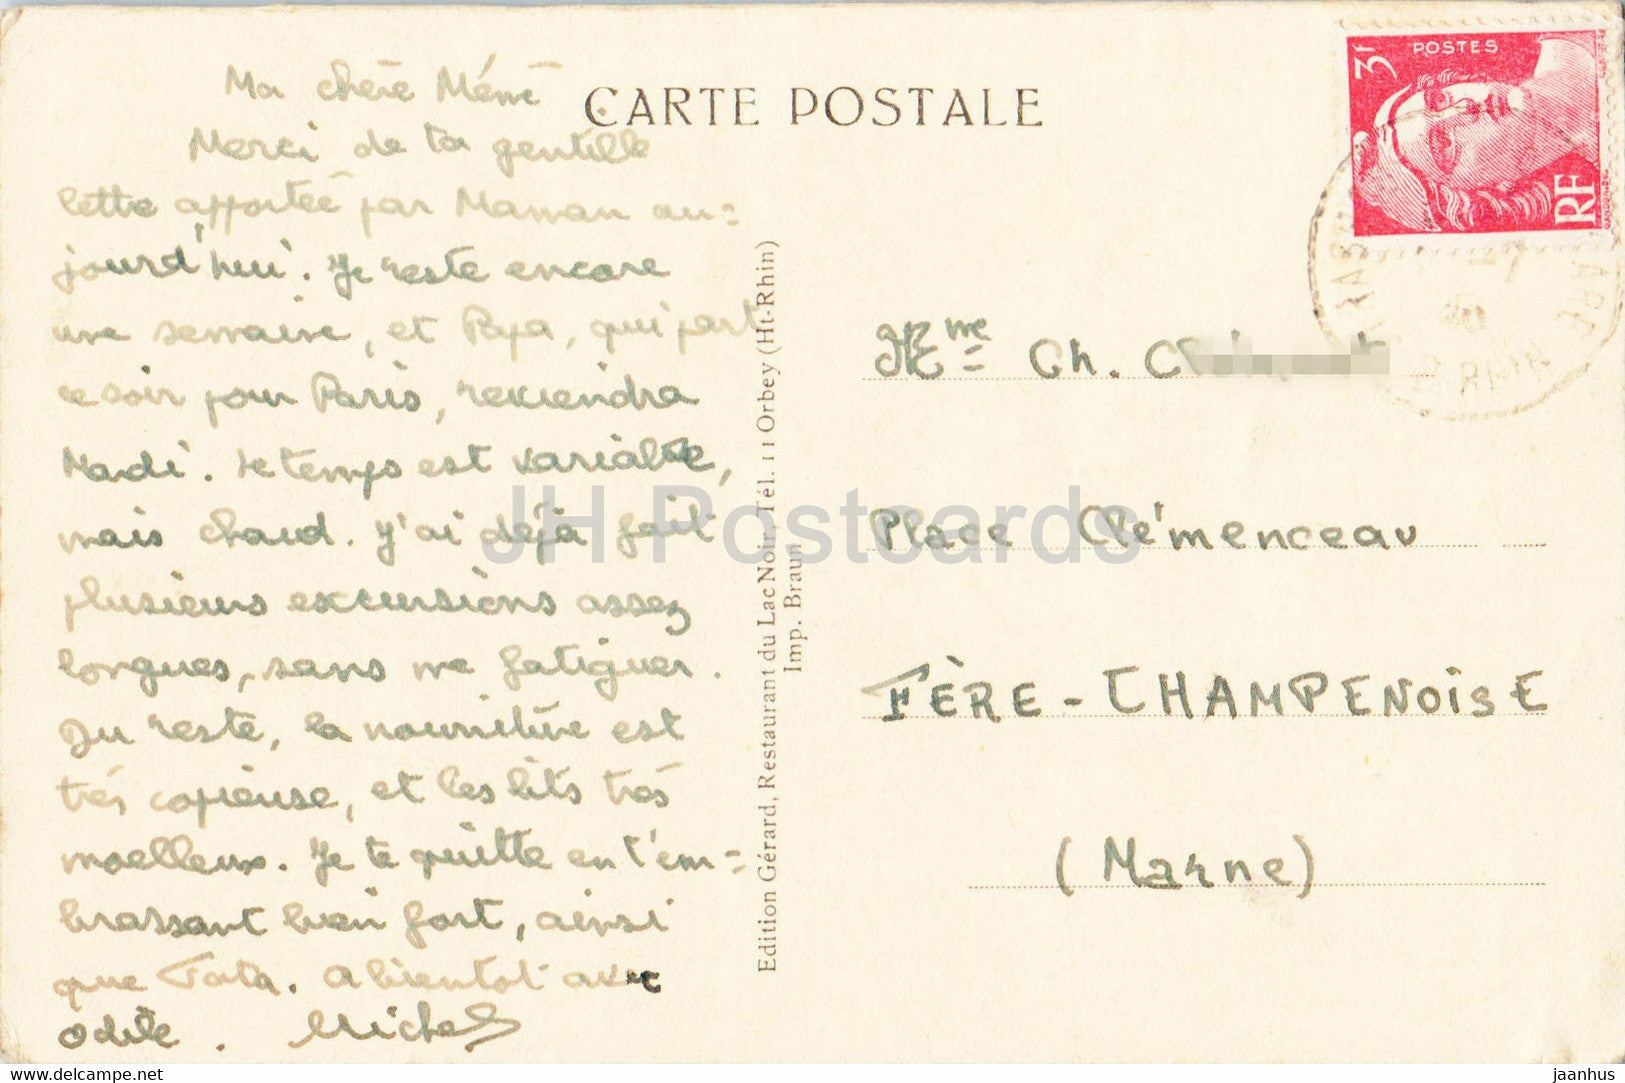 Ma chère Mémé
Merci de ta gentille
lettre apportée par Maman au=
jourd'hui. Je reste encore
une semaine, et Papa, qui part
ce soir pour Paris, reviendra
Mardi. Le temps est variable,
mais chaud. J'ai déjà fait
plusieurs excursions assez
longues, sans me fatiguer.
Du reste, la nourriture est
très copieuse, et les lits très
moelleux. Je te quitte en t'em=
brassant bien fort, ainsi
que Tata. A bientôt avec
Odile. Michel
CARTE POSTALE
Edition Gérard, Restaurant du Lac Noir, Tél. 11 Orbey (Ht-Rhin)
Imp. Braun
3F
POSTES
RF
Mme Ch.
Place Clémenceau
FÈRE-CHAMPENOISE
(Marne)
JH Postcards
www.delcampe.net
jaanhus